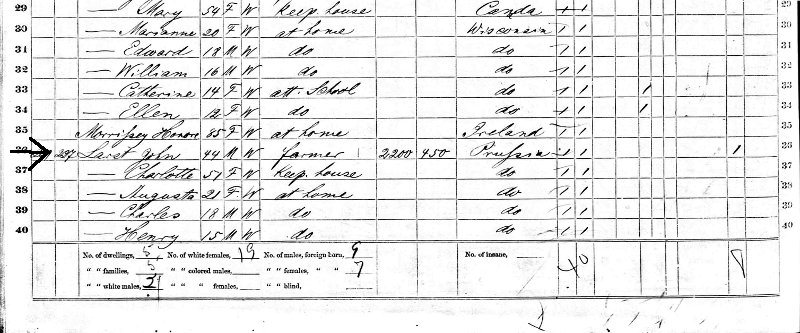 29 — Mary 54 F W Keep. house Canda 1 1 29
30 — Marianne 20 F W at home Wisconsin 1 1 30
31 — Edward 18 M W do do 1 1 31
32 — William 16 M W do do 1 1 32
33 — Catherine 14 F W att. School do 1 1 1 33
34 — Ellen 12 F W do do 1 1 1 34
35 Morrissey Honora 65 F W at home Ireland 1 1 35
297 John 44 M W farmer 2200 450 Prussia 1 1 1 36
37 — Charlotte 51 F W Keep. house do 1 1 37
38 — Augusta 21 F W at home do 1 1 38
39 — Charles 18 M W do do 1 1 39
40 — Henry 15 M W do do 1 1 40
No. of dwellings, 5 No. of white females, 19 No. of males, foreign born, 9 No. of insane,
" " families, 5 " " colored males, " " females, " " 7 40
" " white males, 21 " " " females, " " blind,